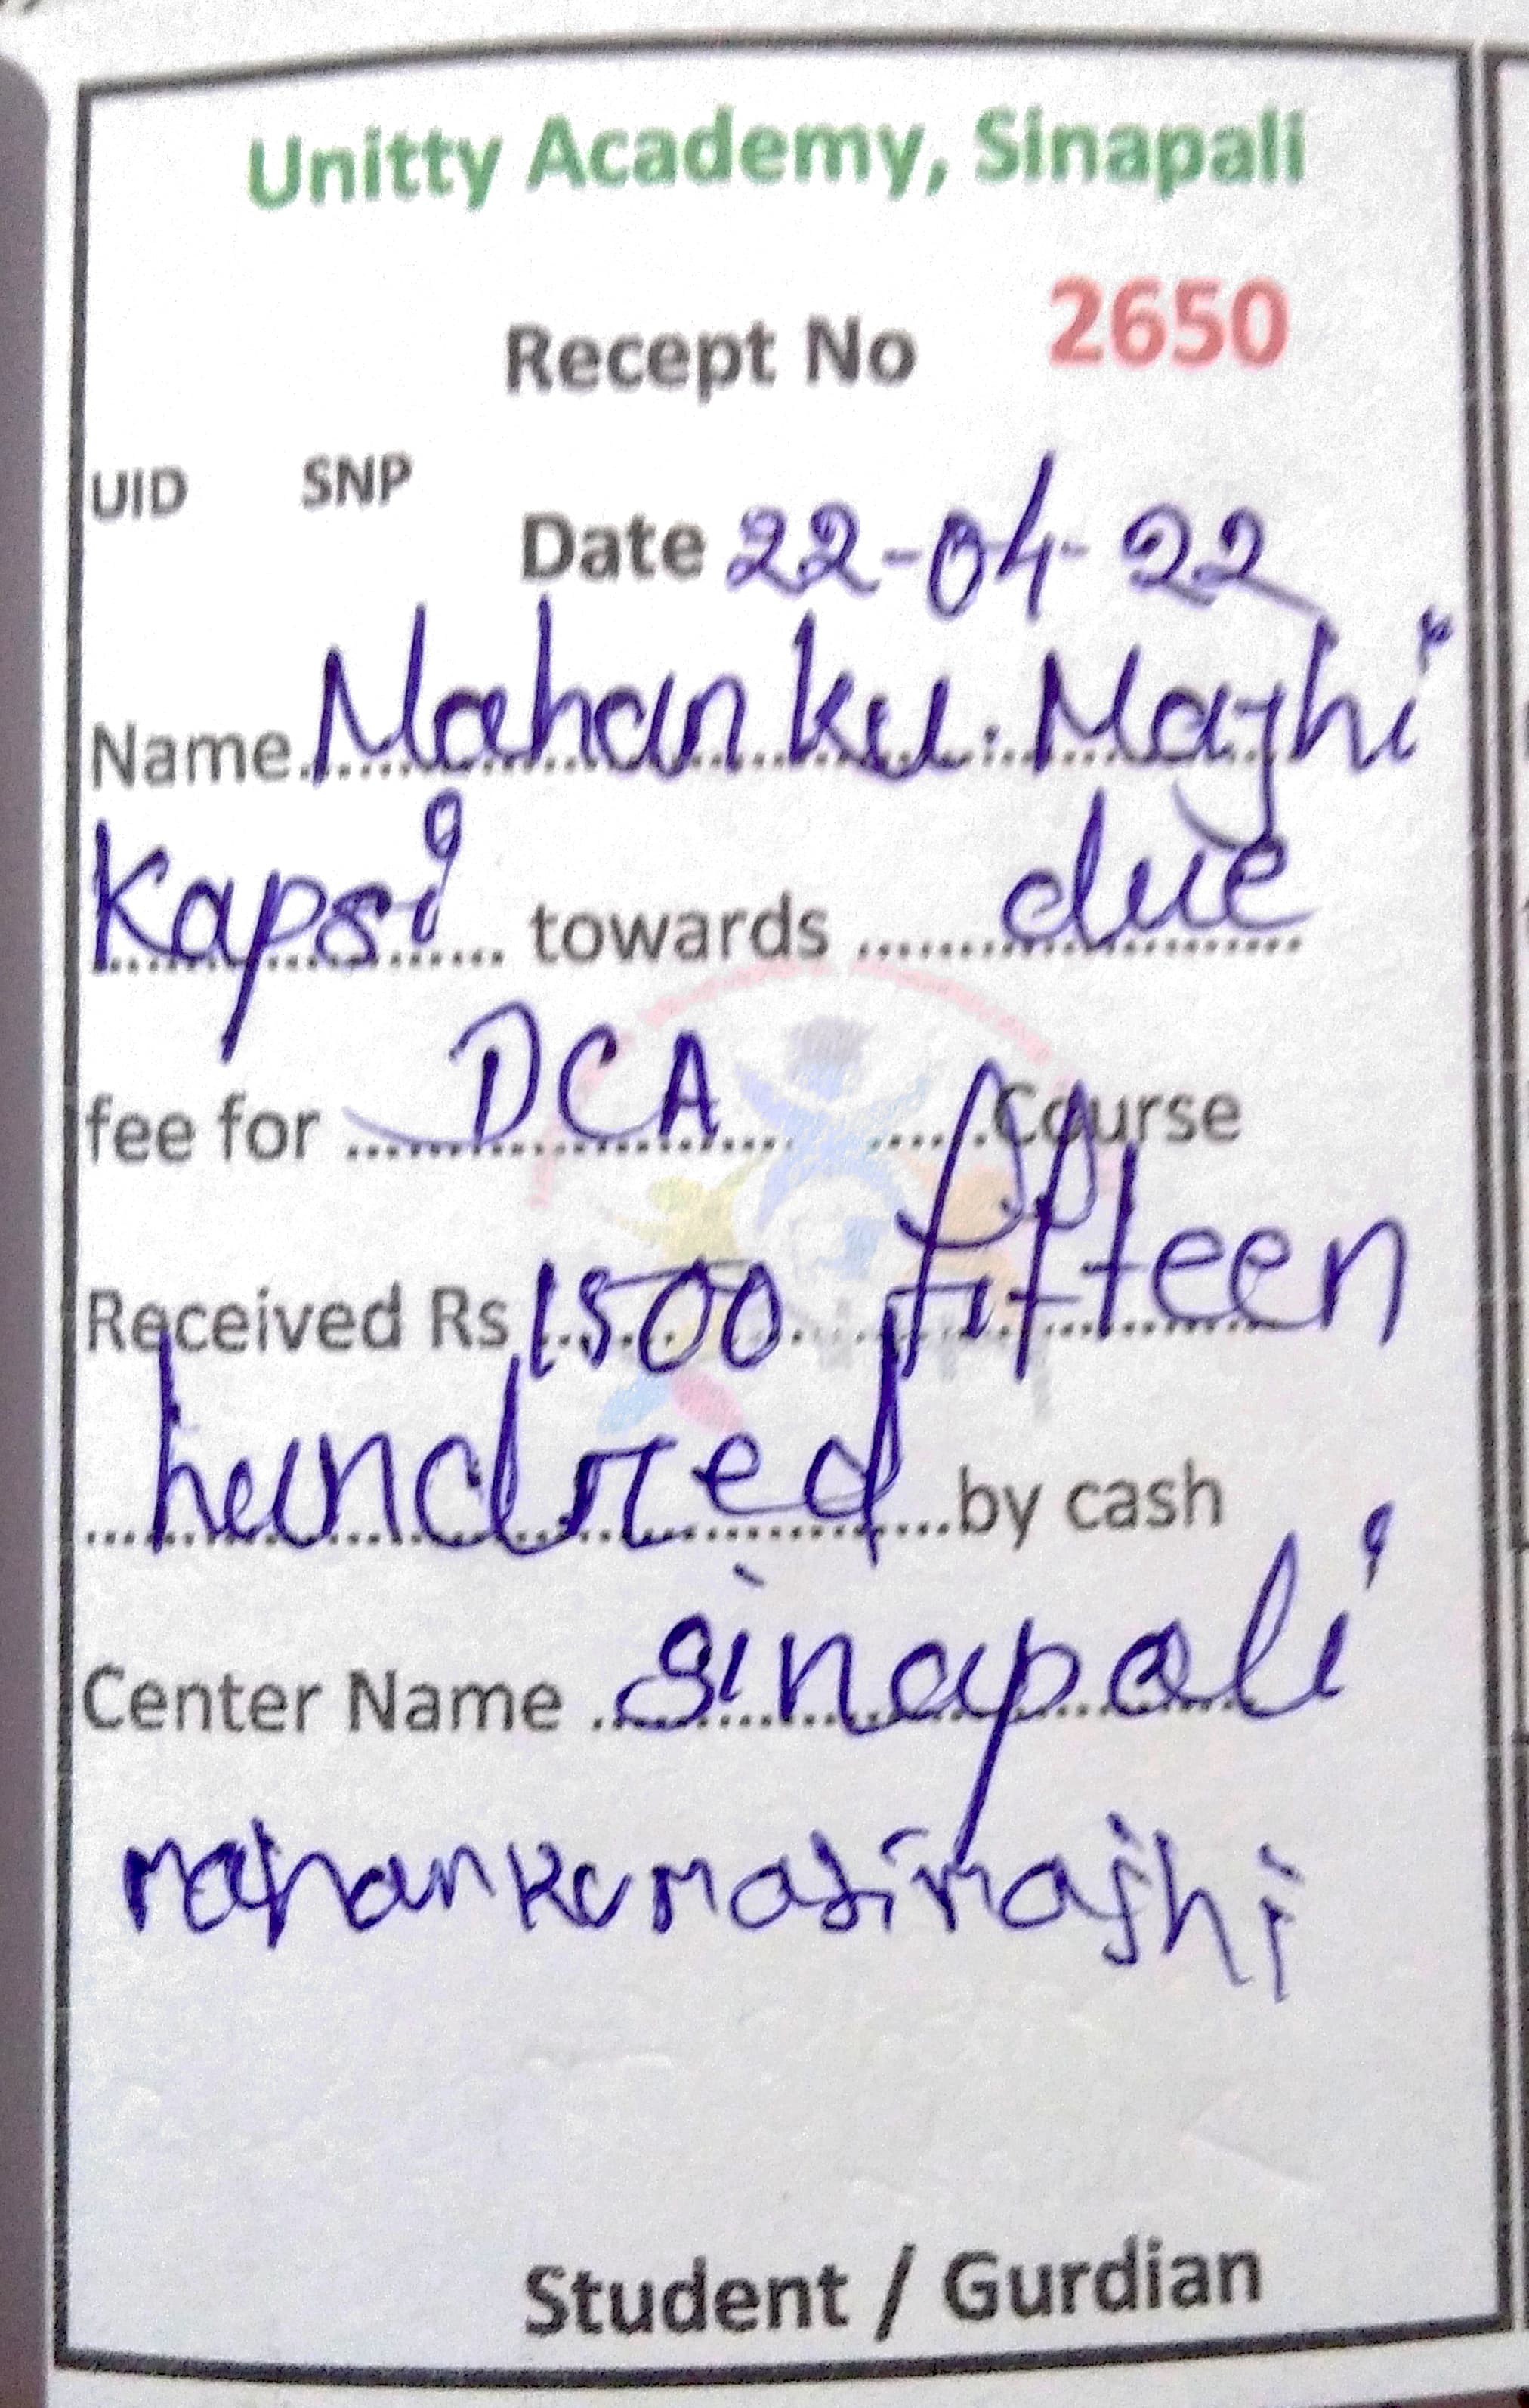 Unitty Academy, Sinapali
Recept No 2650
UID SNP
Date 22-04-22
Name Mahan ku. Majhi
Kapsi towards due
fee for DCA Course
Received Rs 1500 fifteen
hundred by cash
Center Name Sinapali
mahan kumar majhi
Student / Gurdian